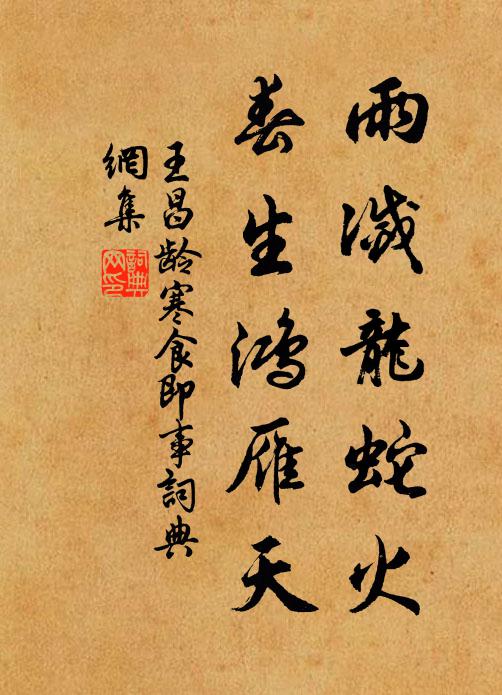 雨滅龍蛇火
春生鴻雁天
王昌龄寒食即事詞典
網集
詞典网印